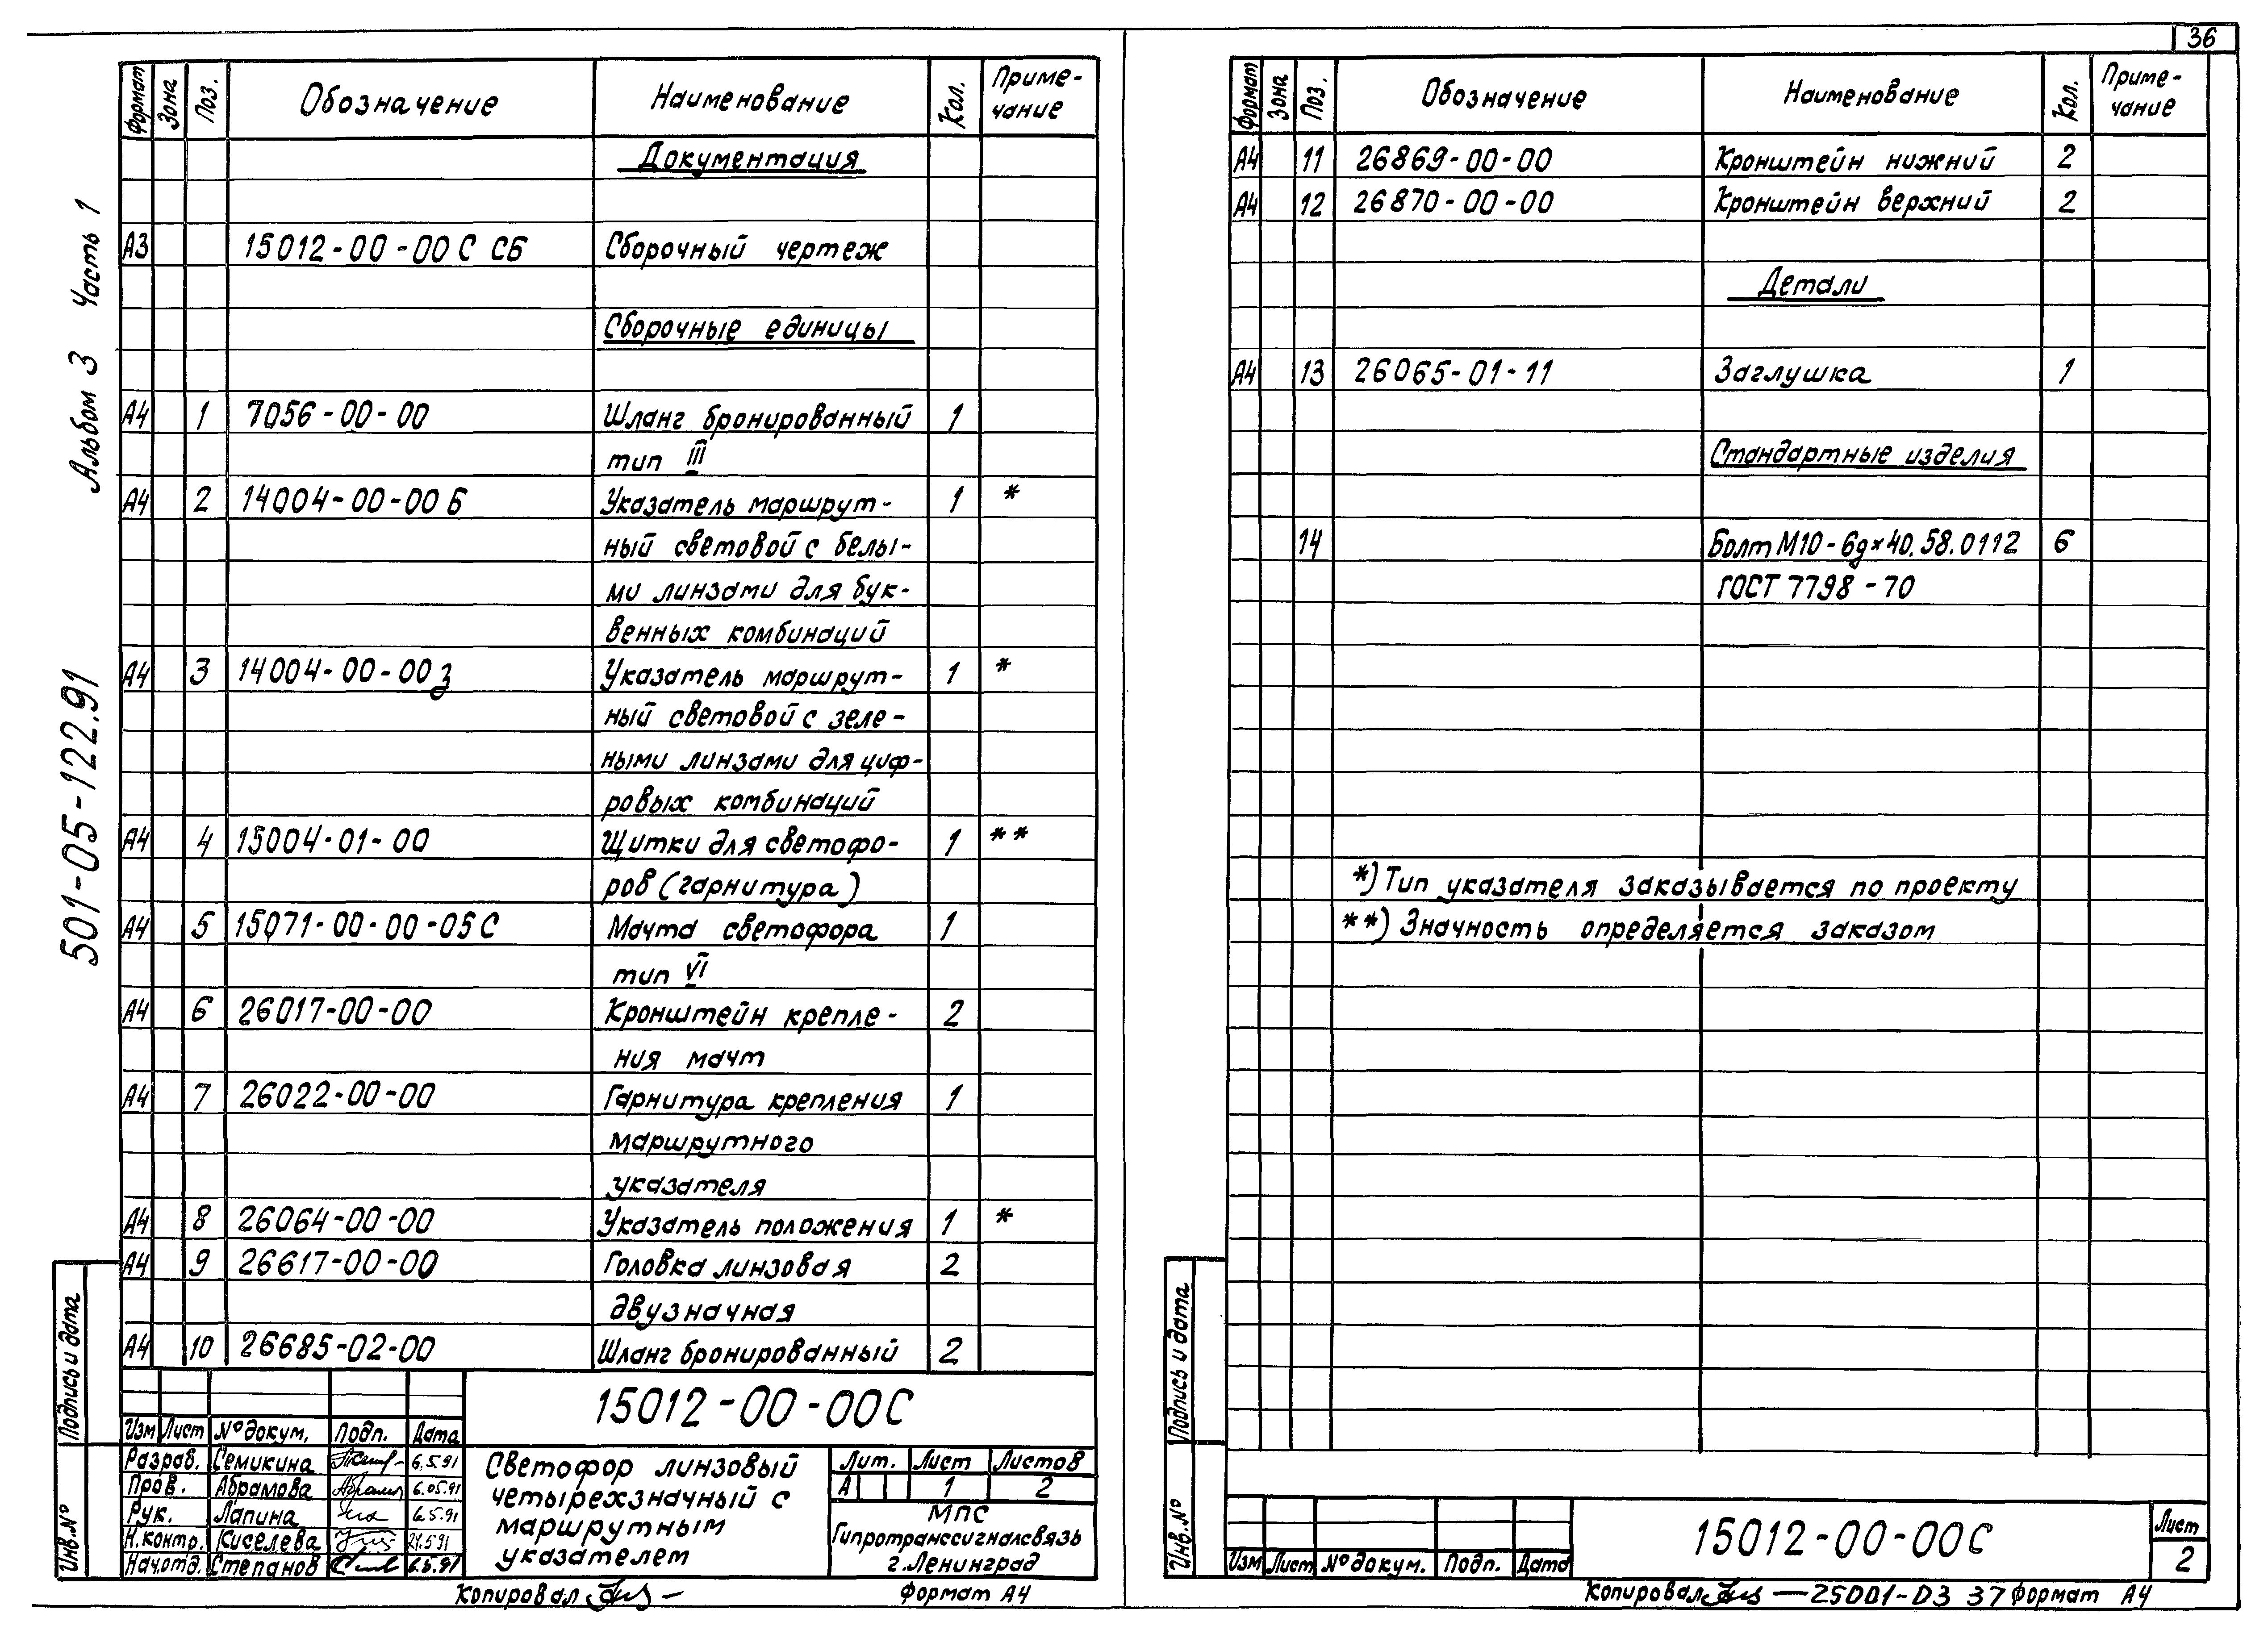 36
Альбом 3 Часть 1
501-05-122.91
Формат Зона Поз. Обозначение Наименование Кол. Приме-
чание
Документация
А3 15012-00-00 С СБ Сборочный чертеж
Сборочные единицы
А4 1 7056-00-00 Шланг бронированный 1
тип III
А4 2 14004-00-00 Б Указатель маршрут- 1 *
ный световой с белы-
ми линзами для бук-
венных комбинаций
А4 3 14004-00-00 з Указатель маршрут- 1 *
ный световой с зеле-
ными линзами для циф-
ровых комбинаций
А4 4 15004-01-00 Щитки для светофо- 1 **
ров (гарнитура)
А4 5 15071-00-00-05 С Мачта светофора 1
тип VI
А4 6 26017-00-00 Кронштейн крепле- 2
ния мачт
А4 7 26022-00-00 Гарнитура крепления 1
маршрутного
указателя
А4 8 26064-00-00 Указатель положения 1 *
А4 9 26617-00-00 Головка линзовая 2
двузначная
А4 10 26685-02-00 Шланг бронированный 2
Подпись и дата
Инв. №
15012-00-00С
Изм Лист № докум. Подп. Дата
Разраб. Семикина 6.5.91
Пров. Абрамова 6.05.91
Рук. Лапина 6.5.91
Н.контр. Киселева 24.5.91
Нач.отд. Степанов 6.5.91
Светофор линзовый
четырехзначный с
маршрутным
указателем
Лит. Лист Листов
А 1 2
МПС
Гипротранссигналсвязь
г.Ленинград
Копировал Формат А4
Формат Зона Поз. Обозначение Наименование Кол. Приме-
чание
А4 11 26869-00-00 Кронштейн нижний 2
А4 12 26870-00-00 Кронштейн верхний 2
Детали
А4 13 26065-01-11 Заглушка 1
Стандартные изделия
14 Болт М10-6g×40.58.0112 6
ГОСТ 7798-70
*) Тип указателя заказывается по проекту
**) Значность определяется заказом
Подпись и дата
Инв. №
Изм Лист № докум. Подп. Дата
15012-00-00С
Лист
2
Копировал 25001-03 37 Формат А4